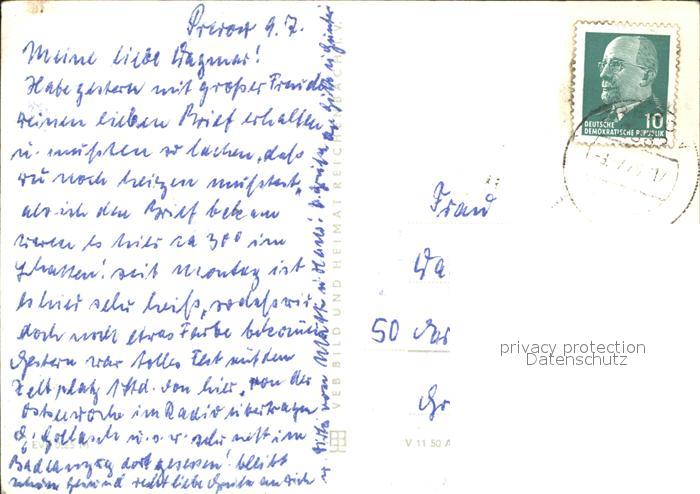 Prerow 9.7.
Meine liebe Dagmar!
Habe gestern mit großer Freude
deinen lieben Brief erhalten
u. mußten so lachen, daß
du noch heizen mußtest,
als ich den Brief bekam
waren es hier ca 30° im
Schatten! seit Montag ist
es hier sehr heiß, sodaß wir
doch noch etwas Farbe bekommen
Gestern war tolles Fest auf dem
Zeltplatz 1 Std. von hier, von der
Ostseewoche im Radio übertragen
u.s.w. sehr nett im
Badeanzug dort gesessen! bleibt
schön gesund recht liebe Grüße an Dich
VEB BILD UND HEIMAT REICHENBACH I. V.
V 11 50 A
DEUTSCHE
DEMOKRATISCHE REPUBLIK
10
Frau
Da
50
privacy protection
Datenschutz